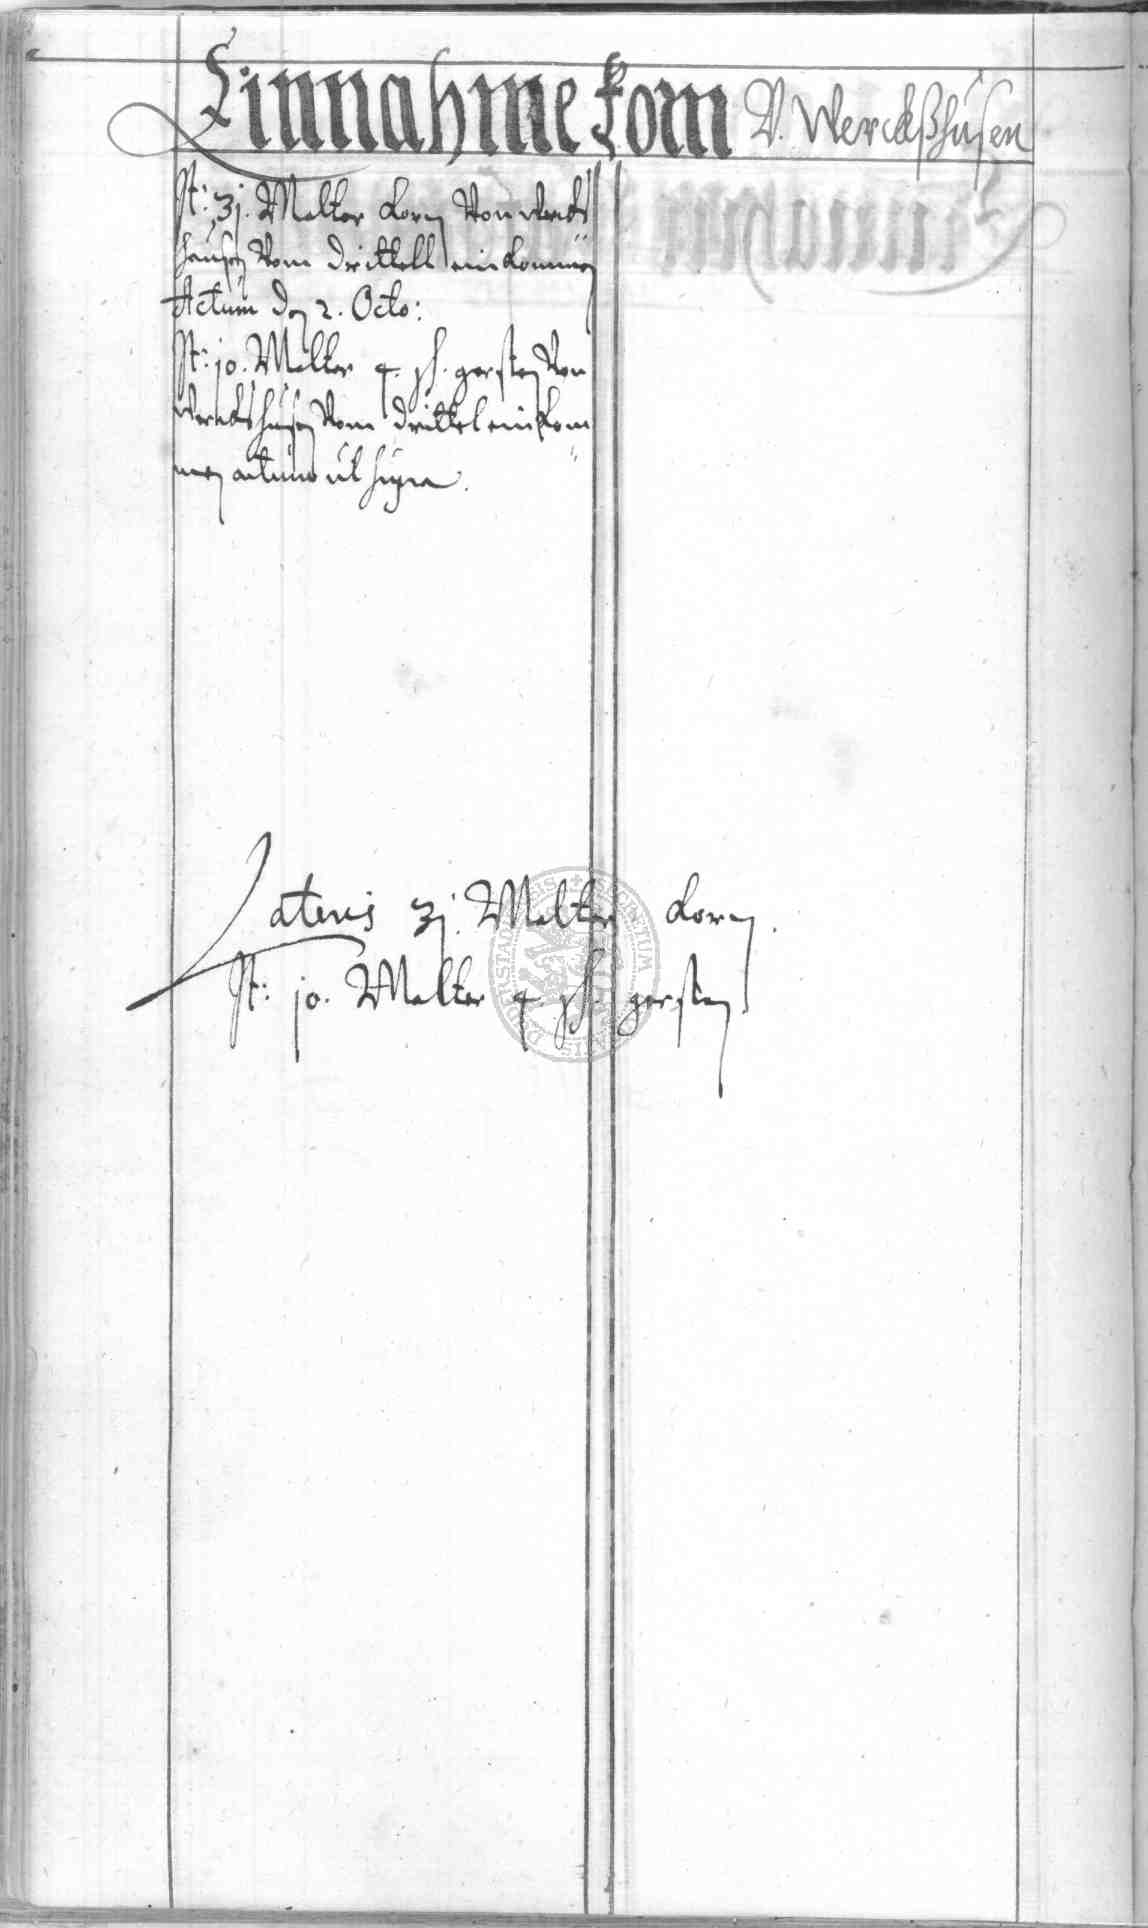 Einnahme korn V. Werckßhusen
It: 3j. Malter korn Von wercks
hausen Vom drittell ein kommen
Actum den 2. Octo:
It: jo. Malter 4. sch. gersten Von
wercks husen Vom drittel ein kom
men actum ut supra.
Lateris 3j. Malter korn.
It: jo. Malter 4. sch. gersten